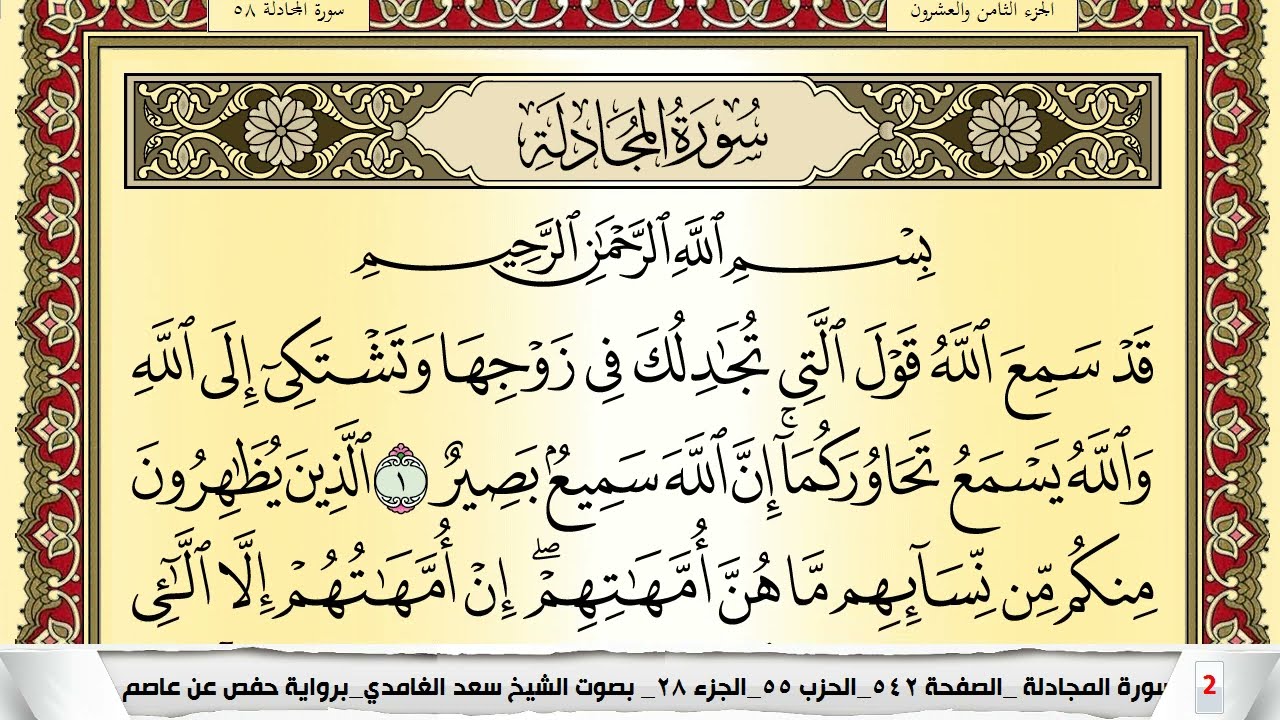 الجزء الثامن والعشرون
سورة المجادلة ٥٨
سُورَةُ المُجَادلَة
بِسْمِ ٱللَّهِ ٱلرَّحْمَٰنِ ٱلرَّحِيمِ
قَدْ سَمِعَ ٱللَّهُ قَوْلَ ٱلَّتِي تُجَٰدِلُكَ فِي زَوْجِهَا وَتَشْتَكِيٓ إِلَى ٱللَّهِ
وَٱللَّهُ يَسْمَعُ تَحَاوُرَكُمَآۚ إِنَّ ٱللَّهَ سَمِيعُۢ بَصِيرٌ ١ ٱلَّذِينَ يُظَٰهِرُونَ
مِنكُم مِّن نِّسَآئِهِم مَّا هُنَّ أُمَّهَٰتِهِمْۖ إِنْ أُمَّهَٰتُهُمْ إِلَّا ٱلَّٰٓـِٔي
2 سورة المجادلة _الصفحة ٥٤٢_الحزب ٥٥_الجزء ٢٨_ بصوت الشيخ سعد الغامدي_برواية حفص عن عاصم